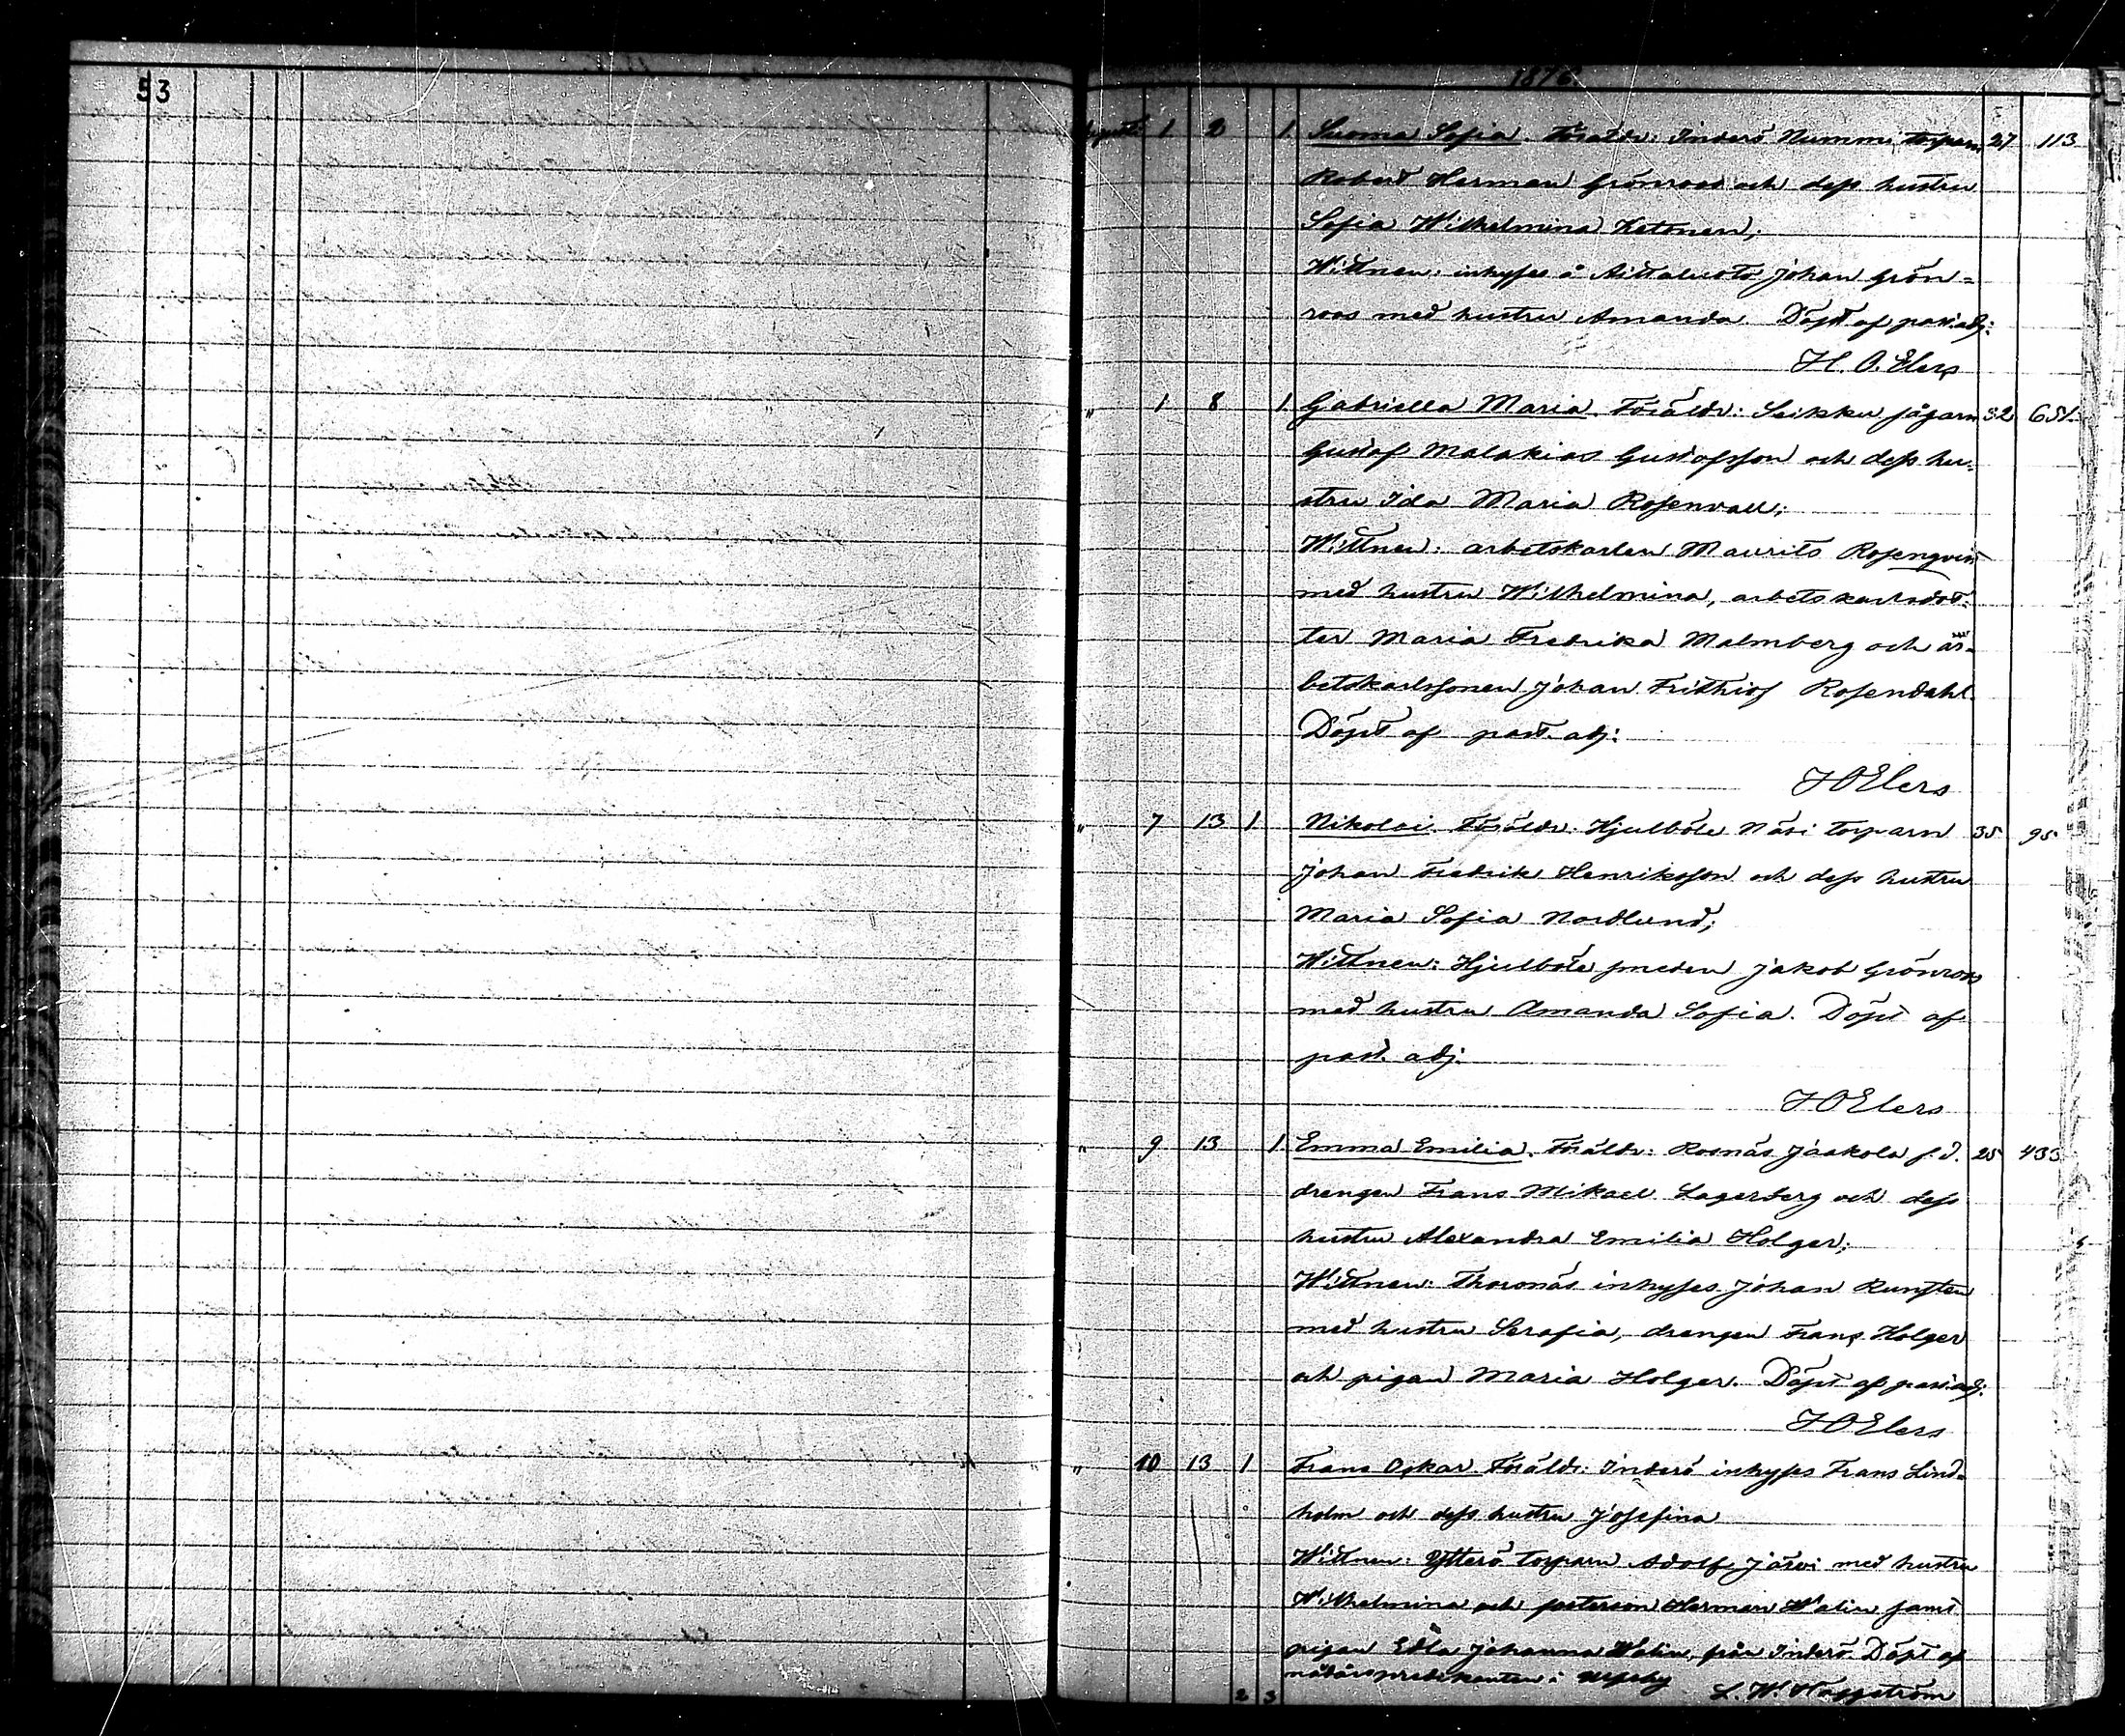 53
1876.
1 2 1 Suoma Sofia. Föräldr: Inderö Nummi torparn 27 113
Robert Herman Grönroos och dess hustru
Sofia Wilhelmina Ketonen;
Wittnen: inhyses å Aittaluoto Johan Grön-
roos med hustru Amanda. Döpt af past. adj:
H. O. Elers
" 1 8 1 Gabriella Maria. Föräldr: Seikku sågarn 32 651.
Gustaf Malakias Gustafsson och dess hu-
stru Ida Maria Rosenvall;
Wittnen: arbetskarlen Maurits Rosenqvist
med hustru Wilhelmina, arbetskarlsdot-
ter Maria Fredrika Malmberg och ar-
betskarlssonen Johan Frithiof Rosendahl.
Döpt af past. adj:
H O Elers
" 7 13 1 Nikolai. Föräldr: Hjulböle Näsi torparn 35 95
Johan Fredrik Henriksson och dess hustru
Maria Sofia Nordlund;
Wittnen: Hjulböle smeden Jakob Grönroos
med hustru Amanda Sofia. Döpt af
past. adj.
H O Elers
" 9 13 1 Emma Emilia. Föräldr: Rosnäs Jaakola f.d. 25 433
drengen Frans Mikael Lagerberg och dess
hustru Alexandra Emilia Holger;
Wittnen: Thorsnäs inhyses Johan Runsten
med hustru Serafia, drengen Frans Holger
och pigan Maria Holger. Döpt af past. adj.
H O Elers
" 10 13 1 Frans Oskar. Föräldr: Inderö inhyses Frans Lind-
holm och dess hustru Josefina
Wittnen: Ytterö torparn Adolf Järvi med hustru
Wilhelmina och Herman Walin samt
pigan Edla Johanna Walin, från Inderö. Döpt af
nådårspredikanten i Ulfsby
L. W. Häggström
2 3